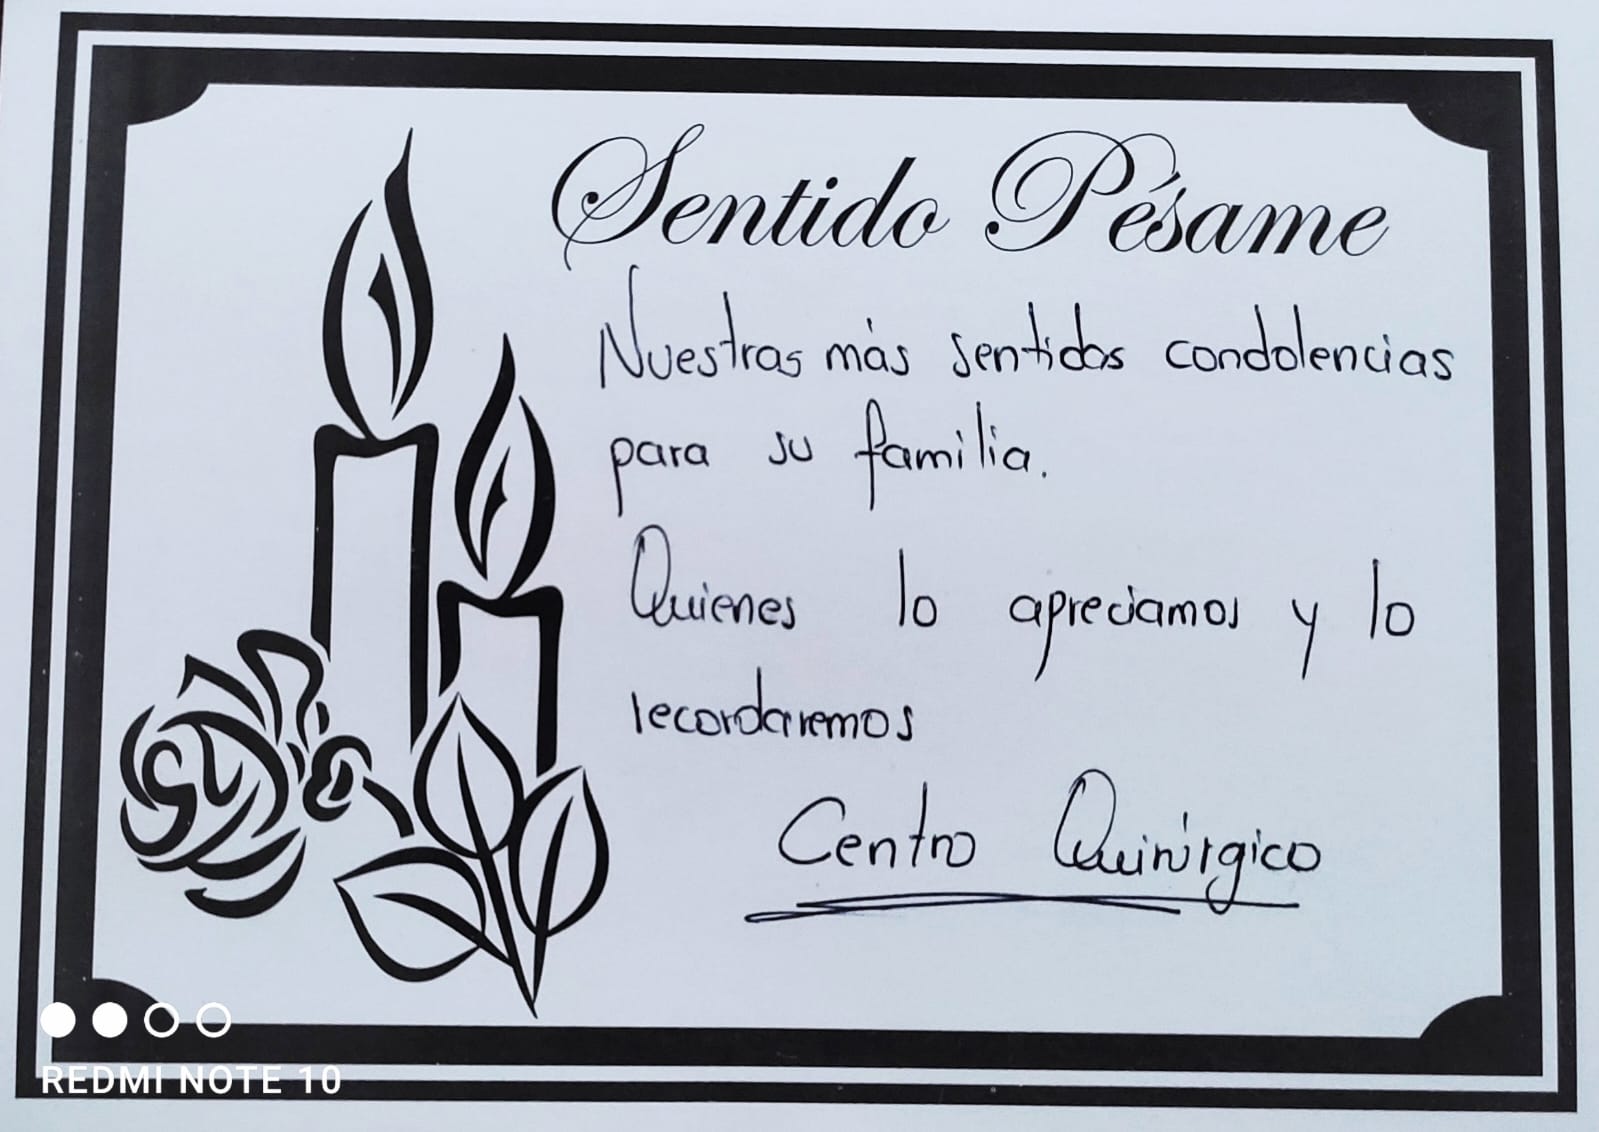 Sentido Pésame
Nuestras más sentidas condolencias
para su familia.
Quienes lo apreciamos y lo
recordaremos
Centro Quirúrgico
REDMI NOTE 10